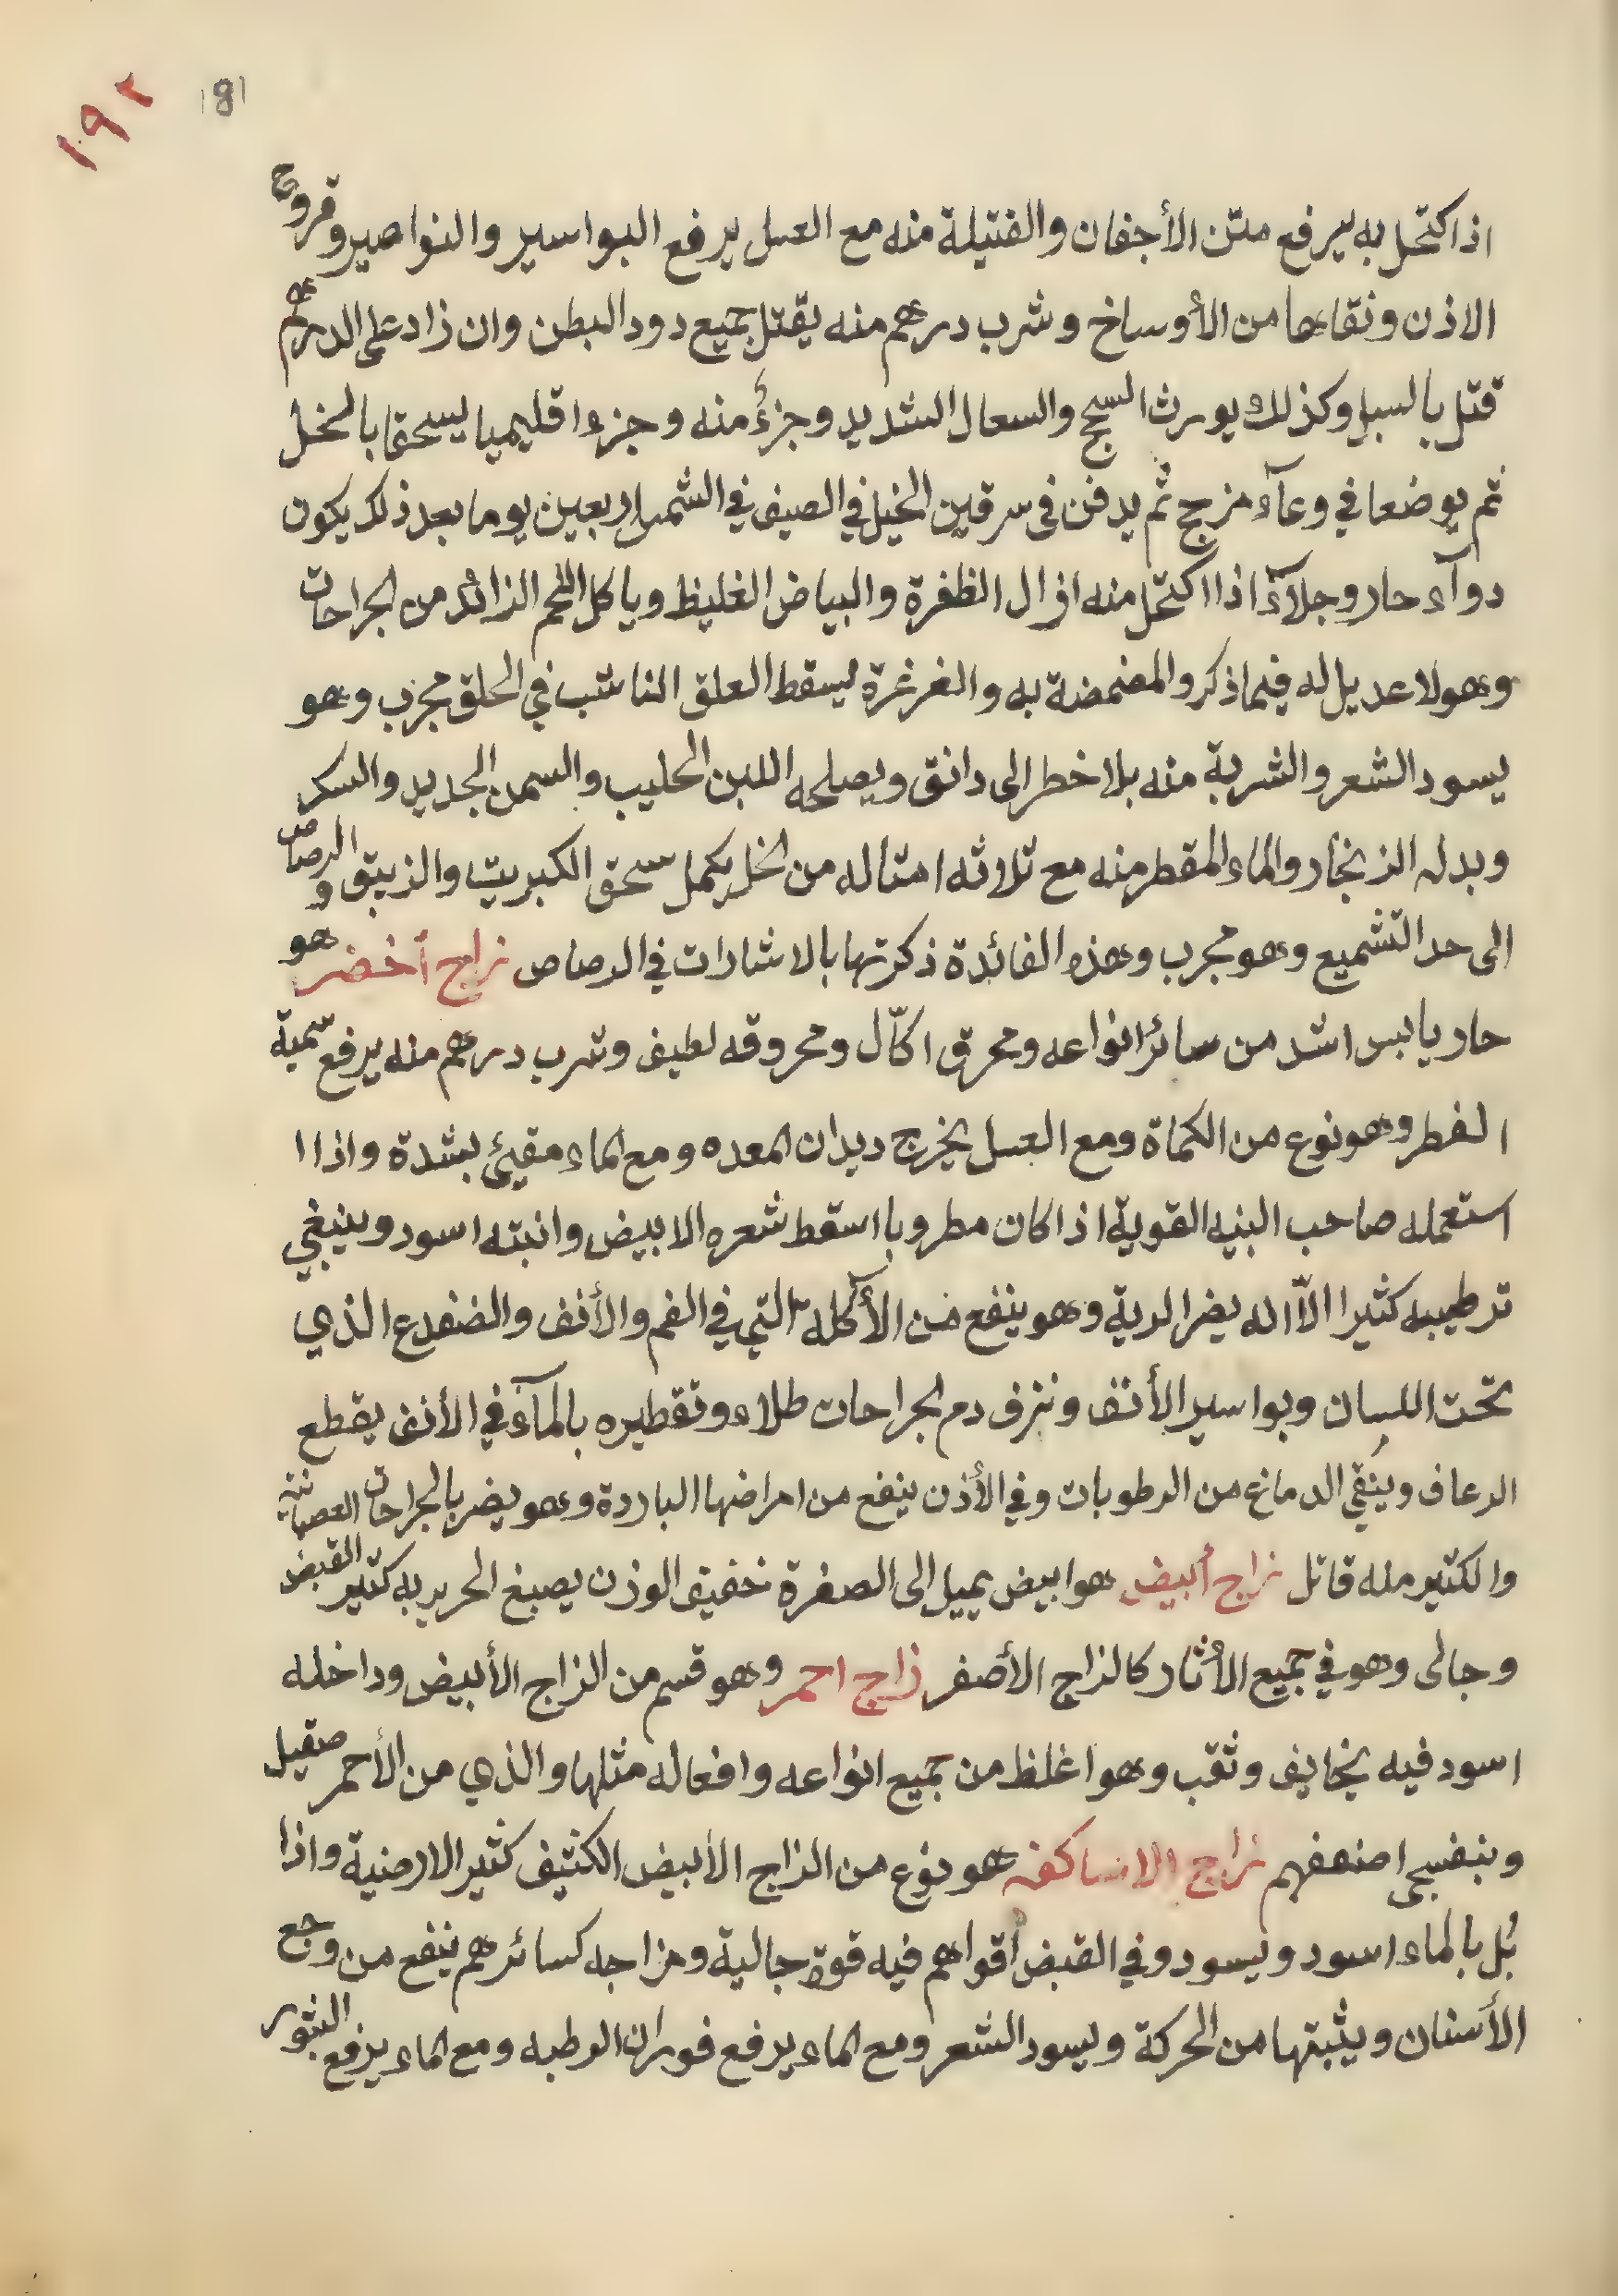 ١٩٢
181
اذا اكتحل به يرفع متن الأجفان والفتيلة منه مع العسل يرفع البواسير والنواصير وقروح
الاذن ونقاها من الأوساخ وشرب درهم منه يقتل جميع دود البطن وان زاد على الدرهم
قتل بالسيل وكذلك يورث السحج والسعال الشديد وجزءٌ منه وجزء اقليميا يسحقا بالخل
ثم يوضعا في وعآء مزجج ثم يدفن في سرقين الخيل في الصيف في الشمس اربعين يوما بعد ذلك يكون
دوآء حار وجلآءً اذا اكتحل منه ازال الظفرة والبياض الغليظ وياكل اللحم الزائد من الجراحات
وهو لا عديل له فيما ذكر والمضمضة به والغرغرة يسقط العلق الناشب في الحلق مجرب وهو
يسود الشعر والشربة منه بلا خطر الى دانق ويصلحه اللبن الحليب والسمن الجديد والسكر
وبدله الزنجار والماء المقطر منه مع ثلاثه امثاله من الخل يكمل سحق الكبريت والزيبق والرصاص
الى حد التشميع وهو مجرب وهذه الفائدة ذكرتها بالاشارات في الرصاص زاج أخضر هو
حار يابس اشد من سائر انواعه ومحرق اكّال ومحروقه لطيف وشرب درهم منه يرفع سمية
الفطر وهو نوع من الكماة ومع العسل يخرج ديدان المعده ومع الماء مقيئ بشدة واذا ا
استعمله صاحب البنيه القوية اذا كان مطروبا اسقط شعره الابيض وانبته اسود وينبغي
ترطيبه كثيرا الاّ انه يضر الرية وهو ينفع من الأكله التي في الفم والأنف والضفدع الذي
تحت اللسان وبواسير الأنف ونزف دم الجراحات طلاء وتقطيره بالمآء في الأنف يقطع
الرعاف وينقي الدماغ من الرطوبات وفي الأذن ينفع من امراضها الباردة وهو يضر بالجراحات العصبانية
والكثير منه قاتل زاج أبيض هو ابيض يميل الى الصفرة خفيف الوزن يصبغ الحرير به كثير القبض
وجالى وهو في جميع الأثار كالزاج الأصفر زاج احمر وهو قسم من الزاج الأبيض وداخله
اسود فيه تجايف وثقب وهو اغلظ من جميع انواعه وافعاله مثلها والذي من الأحمر صقيل
وبنفسجى اضعفهم زاج الاساكفه هو نوع من الزاج الأبيض الكثيف كثير الارضية واذا
بُل بالماء اسود ويسود وفي القبض أقواهم فيه قوة جالية ومزاجه كسائرهم ينفع من وجع
الأسنان ويثبتها من الحركة ويسود الشعر ومع الماء يرفع فوران الرطبه ومع الماء يرفع البثور